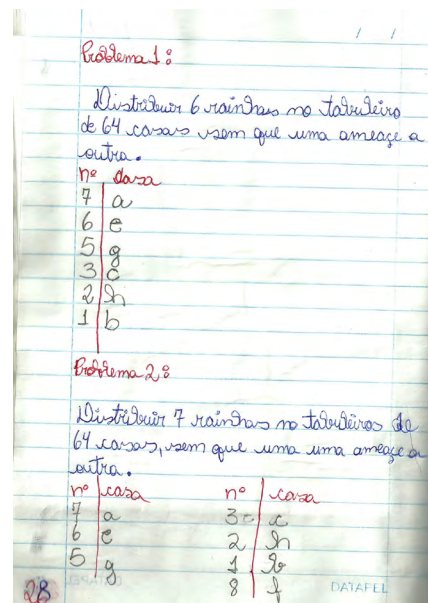 / /
Problema 1:
Distribuir 6 rainhas no tabuleiro
de 64 casas sem que uma ameaçe a
outra.
nº casa
7 a
6 e
5 g
3 c
2 h
1 b
Problema 2:
Distribuir 7 rainhas no tabuleiros de
64 casas, sem que uma uma ameaçe a
outra.
nº casa nº casa
7 a 3 c
6 e 2 h
5 g 1 b
8 f
28 DATAPEL